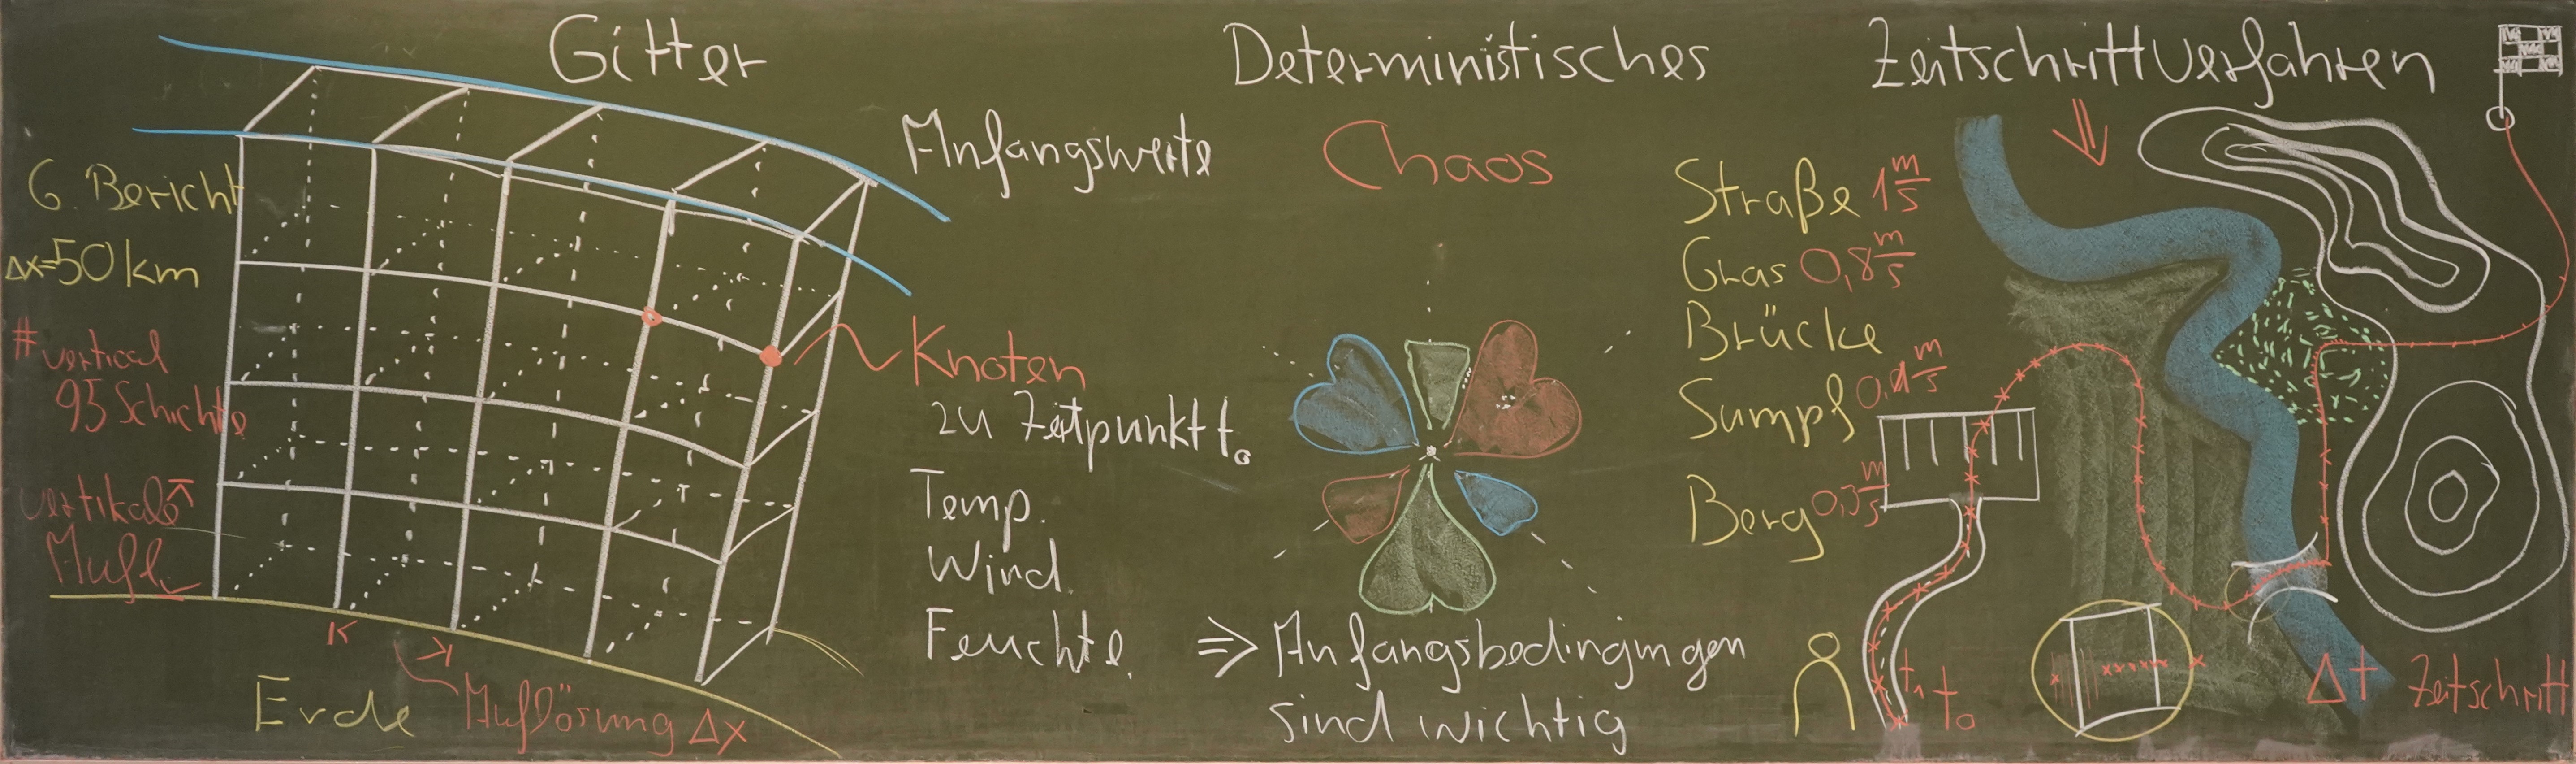 Gitter
6. Bericht
Δx=50 km
# vertical
95 Schichte
vertikale
Aufl.
Erde
Auflösung Δx
Anfangswerte
Knoten
zu Zeitpunkt t₀
Temp.
Wind
Feuchte.
Deterministisches
Chaos
⇒ Anfangsbedingungen
sind wichtig
Zeitschrittverfahren
Straße 1 m/s
Gras 0,8 m/s
Brücke
Sumpf 0,1 m/s
Berg 0,3 m/s
t₁ t₀
Δt Zeitschritt